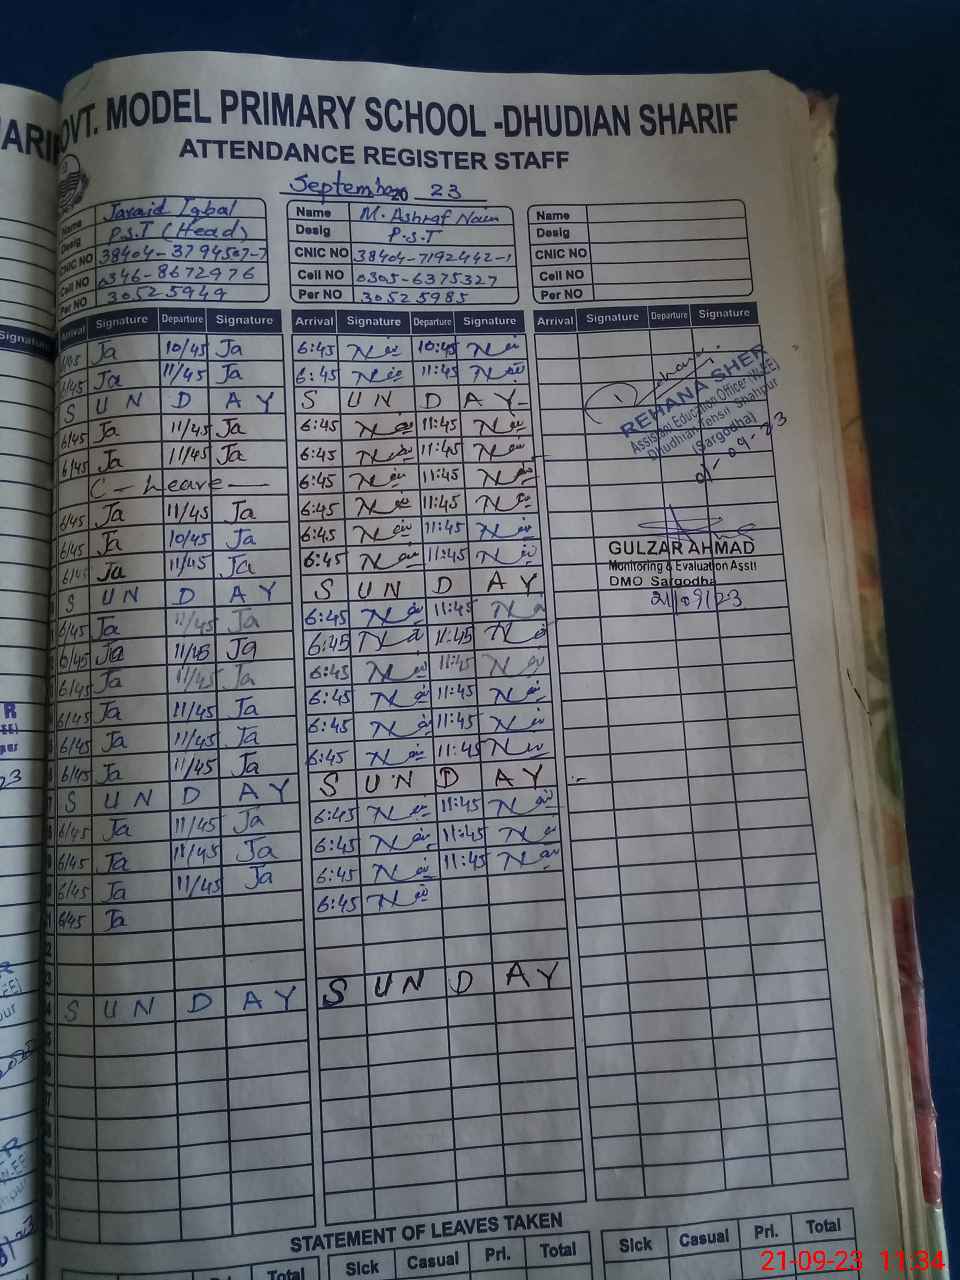 OVT. MODEL PRIMARY SCHOOL -DHUDIAN SHARIF
ATTENDANCE REGISTER STAFF
September 20 23
Name Javaid Iqbal
Desig P.S.T (Head)
CNIC NO 38404-3794507-7
Cell NO 0346-8672976
Per NO 30525949
Name M. Ashraf
Desig P.S.T
CNIC NO 38404-7192442-1
Cell NO 0305-6375327
Per NO 30525985
Name
Desig
CNIC NO
Cell NO
Per NO
Arrival Signature Departure Signature Arrival Signature Departure Signature Arrival Signature Departure Signature
Ja 10/45 Ja 6:45 10:45
6/45 Ja 11/45 Ja 6:45 11:45
S U N D A Y S U N D A Y
6/45 Ja 11/45 Ja 6:45 11:45
6/45 Ja 11/45 Ja 6:45 11:45
C - Leave 6:45 11:45
6/45 Ja 11/45 Ja 6:45 11:45
6/45 Ja 10/45 Ja 6:45 11:45
6/45 Ja 11/45 Ja 6:45 11:45
S U N D A Y S U N D A Y
6/45 Ja 11/45 Ja 6:45 11:45
Ja 11/45 Ja 6:45 11:45
6/45 Ja 11/45 Ja 6:45 11:45
6/45 Ja 11/45 Ja 6:45 11:45
6/45 Ja 11/45 Ja 6:45 11:45
6/45 Ja 11/45 Ja 6:45 11:45
S U N D A Y S U N D A Y
6/45 Ja 11/45 Ja 6:45 11:45
6/45 Ja 11/45 Ja 6:45 11:45
6/45 Ja 11/45 Ja 6:45 11:45
6/45 Ja 6:45
S U N D A Y S U N D A Y
REHANA SHER
Assistant Education Officer (W-EE)
Dhudhian Tehsil Shahpur
(Sargodha)
09-23
GULZAR AHMAD
Monitoring & Evaluation Asstt
DMO Sargodha
21/09/23
STATEMENT OF LEAVES TAKEN
Total Sick Casual Pri. Total Sick Casual Pri. Total
21-09-23 11:34